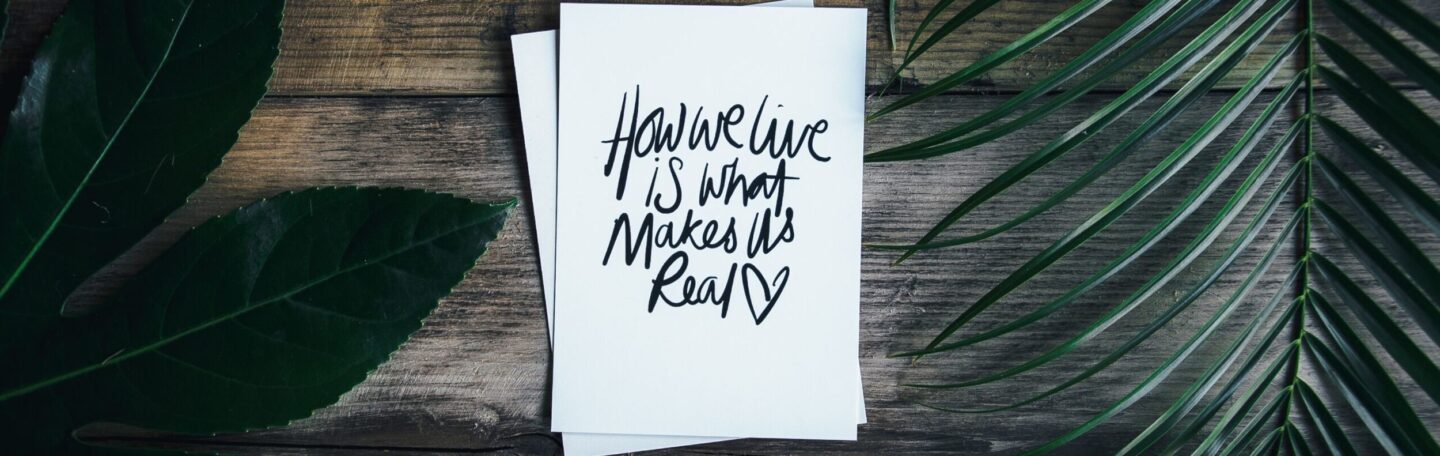 How we live
is what
Makes us
Real ♡